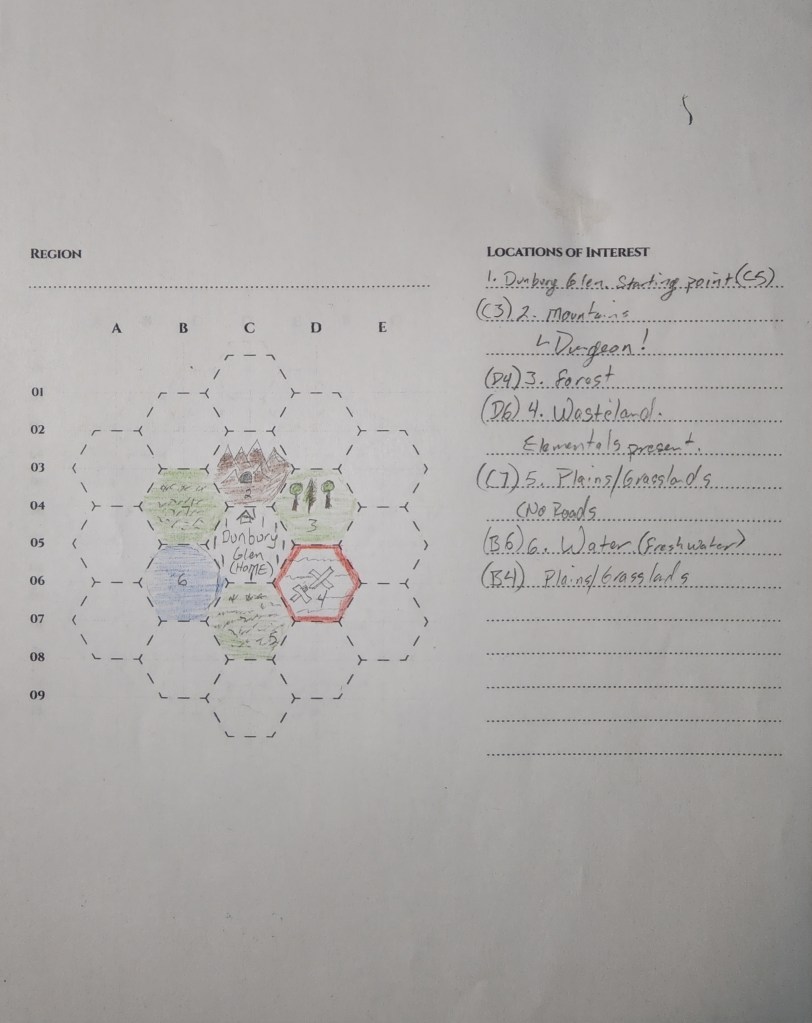 REGION
LOCATIONS OF INTEREST
1. Dunbury Glen. Starting point (C5)
(C3) 2. Mountains
↳ Dungeon!
(D4) 3. Forest
(D6) 4. Wasteland.
Elementals present.
(C7) 5. Plains/Grasslands
(No Roads
(B6) 6. Water (Freshwater)
(B4) Plains/Grasslads
A B C D E
01
02
03
2
04
3
05
Dunbury
Glen
(HOME)
06
6
4
07
5
08
09